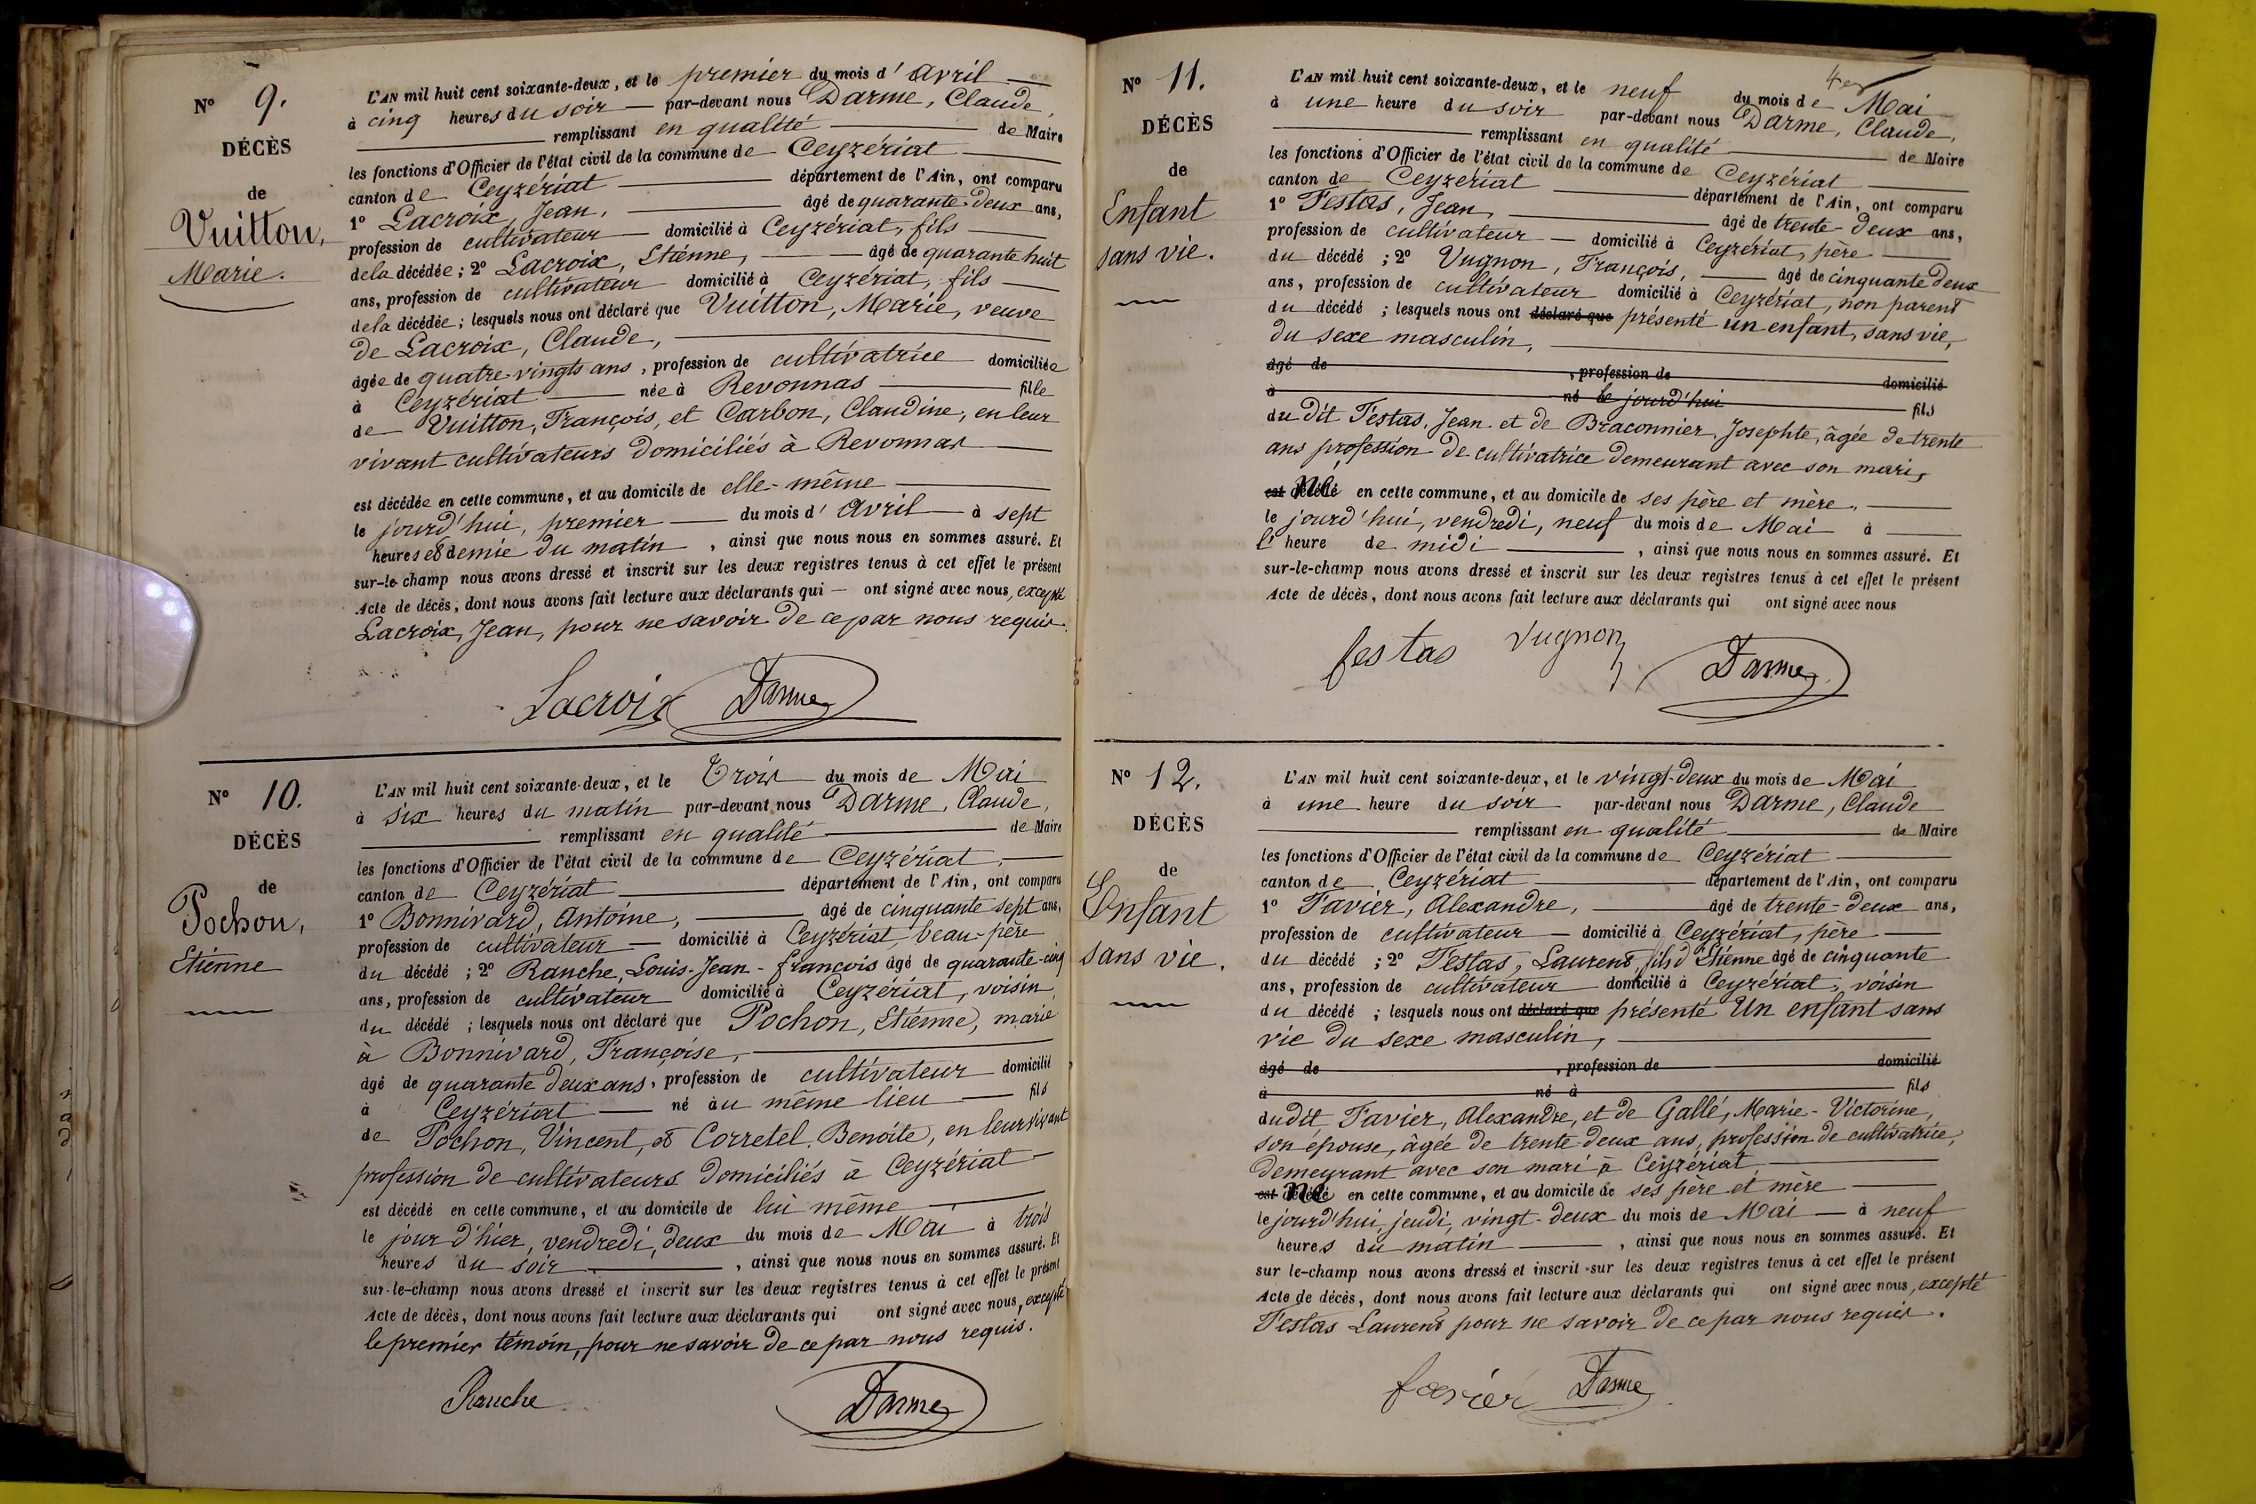 N° 9.
DÉCÈS
de
Vuitton,
Marie.
L'AN mil huit cent soixante-deux, et le premier du mois d'Avril
à cinq heures du soir par-devant nous Darme, Claude,
remplissant en qualité de Maire
les fonctions d'Officier de l'état civil de la commune de Ceyzériat
canton de Ceyzériat département de l'Ain, ont comparu
1° Lacroix, Jean, âgé de quarante-deux ans,
profession de cultivateur domicilié à Ceyzériat, fils
de la décédée ; 2° Lacroix, Etienne, âgé de quarante huit
ans, profession de cultivateur domicilié à Ceyzériat, fils
de la décédée ; lesquels nous ont déclaré que Vuitton, Marie, veuve
de Lacroix, Claude,
âgée de quatre-vingts ans, profession de cultivatrice domiciliée
à Ceyzériat née à Revonnas fille
de Vuitton, François, et Carbon, Claudine, en leur
vivant cultivateurs domiciliés à Revonnas
est décédée en cette commune, et au domicile de elle-même
le jourd'hui, premier du mois d'Avril à sept
heures et demie du matin, ainsi que nous nous en sommes assuré. Et
sur-le-champ nous avons dressé et inscrit sur les deux registres tenus à cet effet le présent
Acte de décès, dont nous avons fait lecture aux déclarants qui ont signé avec nous, excepté
Lacroix, Jean, pour ne savoir de ce par nous requis.
Lacroix Darme
N° 10.
DÉCÈS
de
Pochon,
Etienne
L'AN mil huit cent soixante-deux, et le Trois du mois de Mai
à six heures du matin par-devant nous Darme, Claude,
remplissant en qualité de Maire
les fonctions d'Officier de l'état civil de la commune de Ceyzériat,
canton de Ceyzériat département de l'Ain, ont comparu
1° Bonnivard, Antoine, âgé de cinquante sept ans,
profession de cultivateur domicilié à Ceyzériat, beau-père
du décédé ; 2° Ranche, Louis-Jean-françois âgé de quarante-cinq
ans, profession de cultivateur domicilié à Ceyzériat, voisin
du décédé ; lesquels nous ont déclaré que Pochon, Etienne, marié
à Bonnivard, Françoise,
âgé de quarante deux ans, profession de cultivateur domicilié
à Ceyzériat né au même lieu fils
de Pochon, Vincent, et Corretel, Benoite, en leur vivant
profession de cultivateurs domiciliés à Ceyzériat
est décédé en cette commune, et au domicile de lui même
le jour d'hier, vendredi, deux du mois de Mai à trois
heures du soir, ainsi que nous nous en sommes assuré. Et
sur-le-champ nous avons dressé et inscrit sur les deux registres tenus à cet effet le présent
Acte de décès, dont nous avons fait lecture aux déclarants qui ont signé avec nous, excepté
le premier témoin, pour ne savoir de ce par nous requis.
Ranche Darme
N° 11.
DÉCÈS
de
Enfant
sans vie.
L'AN mil huit cent soixante-deux, et le neuf du mois de Mai
à une heure du soir par-devant nous Darme, Claude,
remplissant en qualité de Maire
les fonctions d'Officier de l'état civil de la commune de Ceyzériat
canton de Ceyzériat département de l'Ain, ont comparu
1° Testas, Jean, âgé de trente-deux ans,
profession de cultivateur domicilié à Ceyzériat, père
du décédé ; 2° Vugnon, François, âgé de cinquante deux
ans, profession de cultivateur domicilié à Ceyzériat, non parent
du décédé ; lesquels nous ont déclaré que présenté un enfant, sans vie,
du sexe masculin,
âgé de , profession de domicilié
à né le jourd'hui fils
du dit Testas, Jean et de Braconnier, Josephte, âgée de trente
ans profession de cultivatrice demeurant avec son mari,
est né en cette commune, et au domicile de ses père et mère,
le jourd'hui, vendredi, neuf du mois de Mai à
l'heure de midi, ainsi que nous nous en sommes assuré. Et
sur-le-champ nous avons dressé et inscrit sur les deux registres tenus à cet effet le présent
Acte de décès, dont nous avons fait lecture aux déclarants qui ont signé avec nous
festas Vugnon Darme
N° 12.
DÉCÈS
de
Enfant
sans vie.
L'AN mil huit cent soixante-deux, et le vingt-deux du mois de Mai
à une heure du soir par-devant nous Darme, Claude
remplissant en qualité de Maire
les fonctions d'Officier de l'état civil de la commune de Ceyzériat
canton de Ceyzériat département de l'Ain, ont comparu
1° Favier, Alexandre, âgé de trente-deux ans,
profession de cultivateur domicilié à Ceyzériat, père
du décédé ; 2° Testas, Laurent, fils d'Etienne âgé de cinquante
ans, profession de cultivateur domicilié à Ceyzériat, voisin
du décédé ; lesquels nous ont déclaré que présenté Un enfant sans
vie du sexe masculin,
âgé de , profession de domicilié
à né à fils
dudit Favier, Alexandre, et de Gallé, Marie-Victorine,
son épouse, âgée de trente-deux ans, profession de cultivatrice,
demeurant avec son mari à Ceyzériat,
est né en cette commune, et au domicile de ses père et mère
le jourd'hui, jeudi, vingt-deux du mois de Mai à neuf
heures du matin, ainsi que nous nous en sommes assuré. Et
sur le-champ nous avons dressé et inscrit sur les deux registres tenus à cet effet le présent
Acte de décès, dont nous avons fait lecture aux déclarants qui ont signé avec nous, excepté
Testas Laurent pour ne savoir de ce par nous requis.
favier Darme